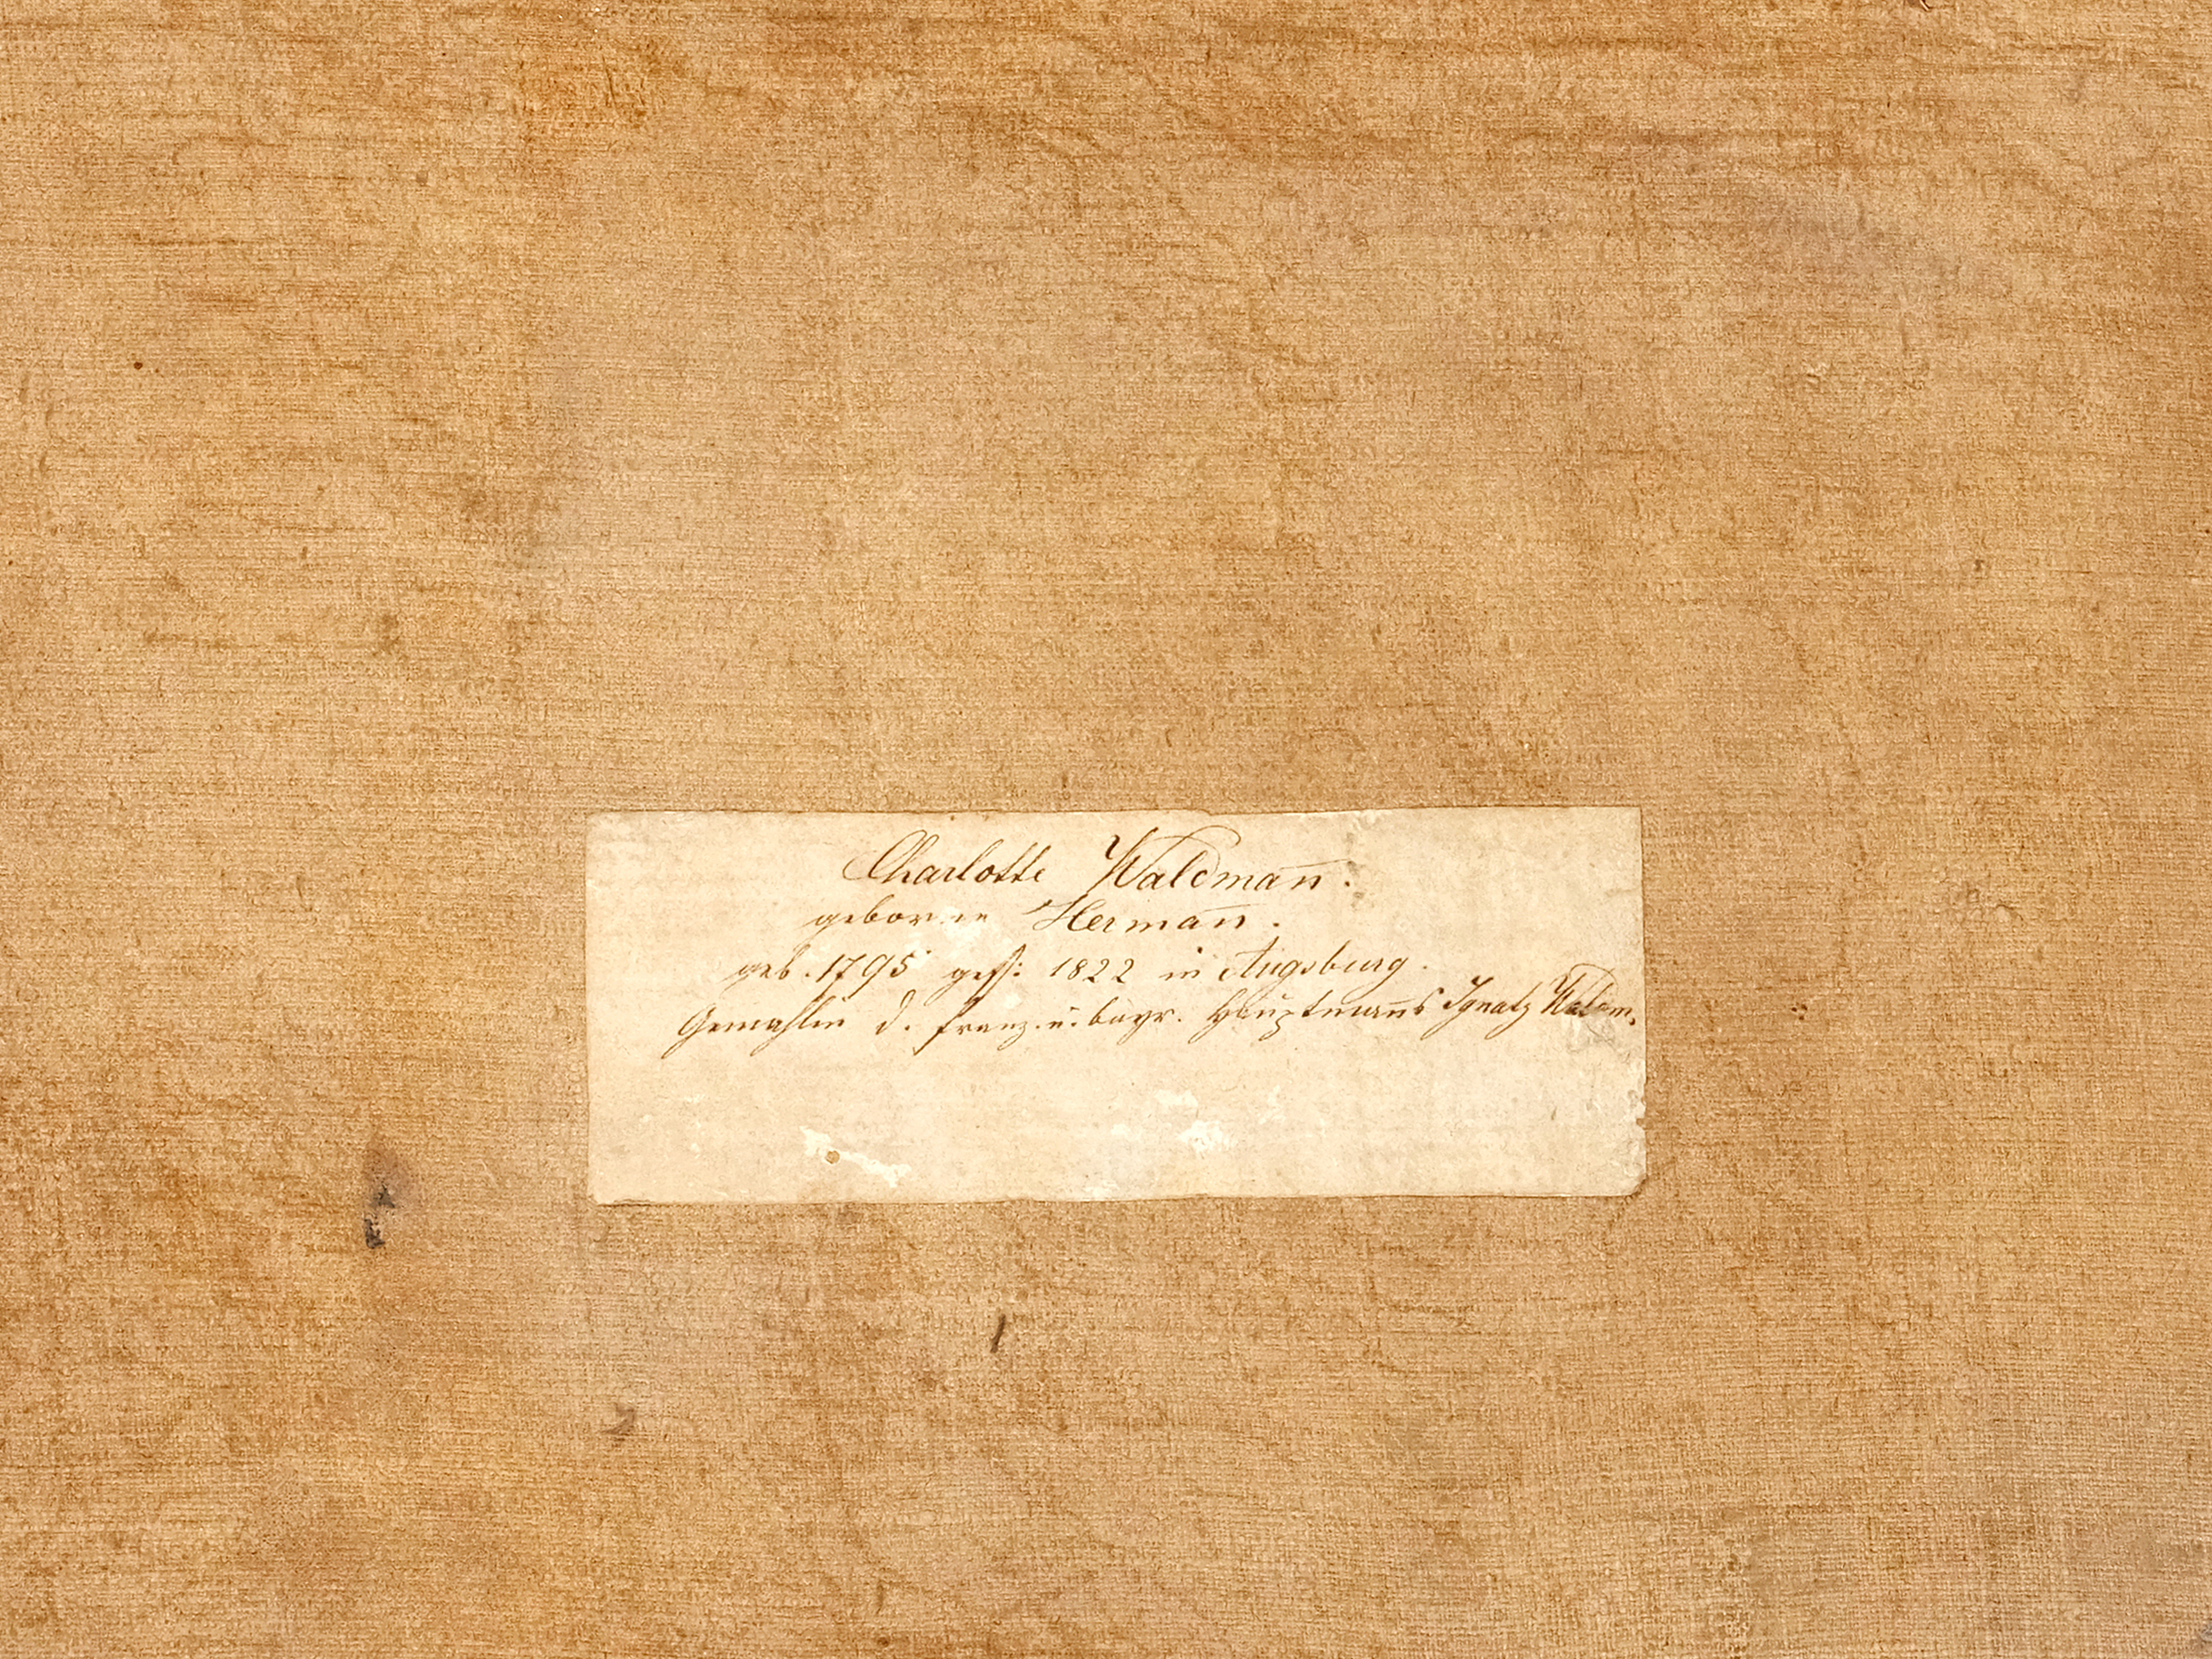 Charlotte Waldman̄.
geborne Herman̄.
geb. 1795 gest: 1822 in Augsburg.
Gemahlin d. franz. u. bayr. Hauptman̄s Ignatz Waldm.